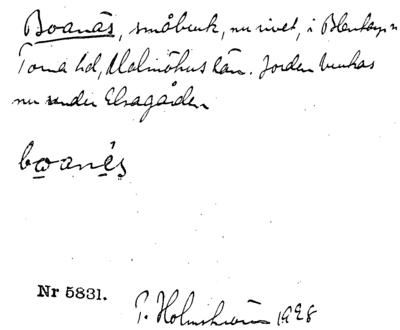 Boanäs, småbruk, nu rivet, i Blentarp
Torna hd, Malmöhus län. Jorden brukas
nu under Elsagården
boanés
Nr 5831.
P. Holmström 1928